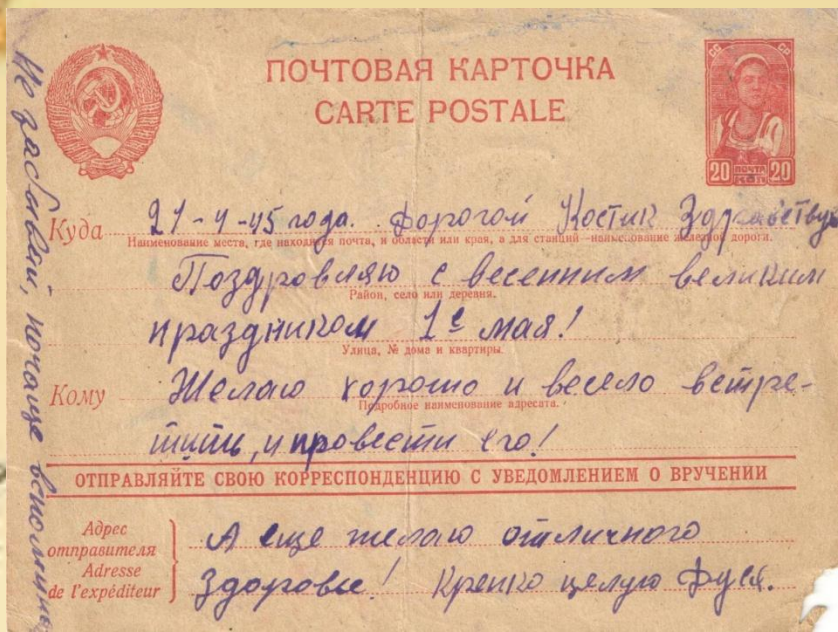 ПОЧТОВАЯ КАРТОЧКА
CARTE POSTALE
СС СР
20 ПОЧТА 20
Куда 21-4-45 года. Дорогой Костик Здравствуй
Наименование места, где находится почта, и области или края, а для станций—наименование железной дороги.
Поздровляю с весенним великим
Район, село или деревня.
праздником 1е мая!
Улица, № дома и квартиры.
Кому Желаю хорошо и весело встре-
Подробное наименование адресата.
тить, и провести его!
ОТПРАВЛЯЙТЕ СВОЮ КОРРЕСПОНДЕНЦИЮ С УВЕДОМЛЕНИЕМ О ВРУЧЕНИИ
Адрес
отправителя
Adresse
de l'expéditeur
А еще желаю отличного
Здоровье! Крепко целую Дуся.
Не забывай, почаще